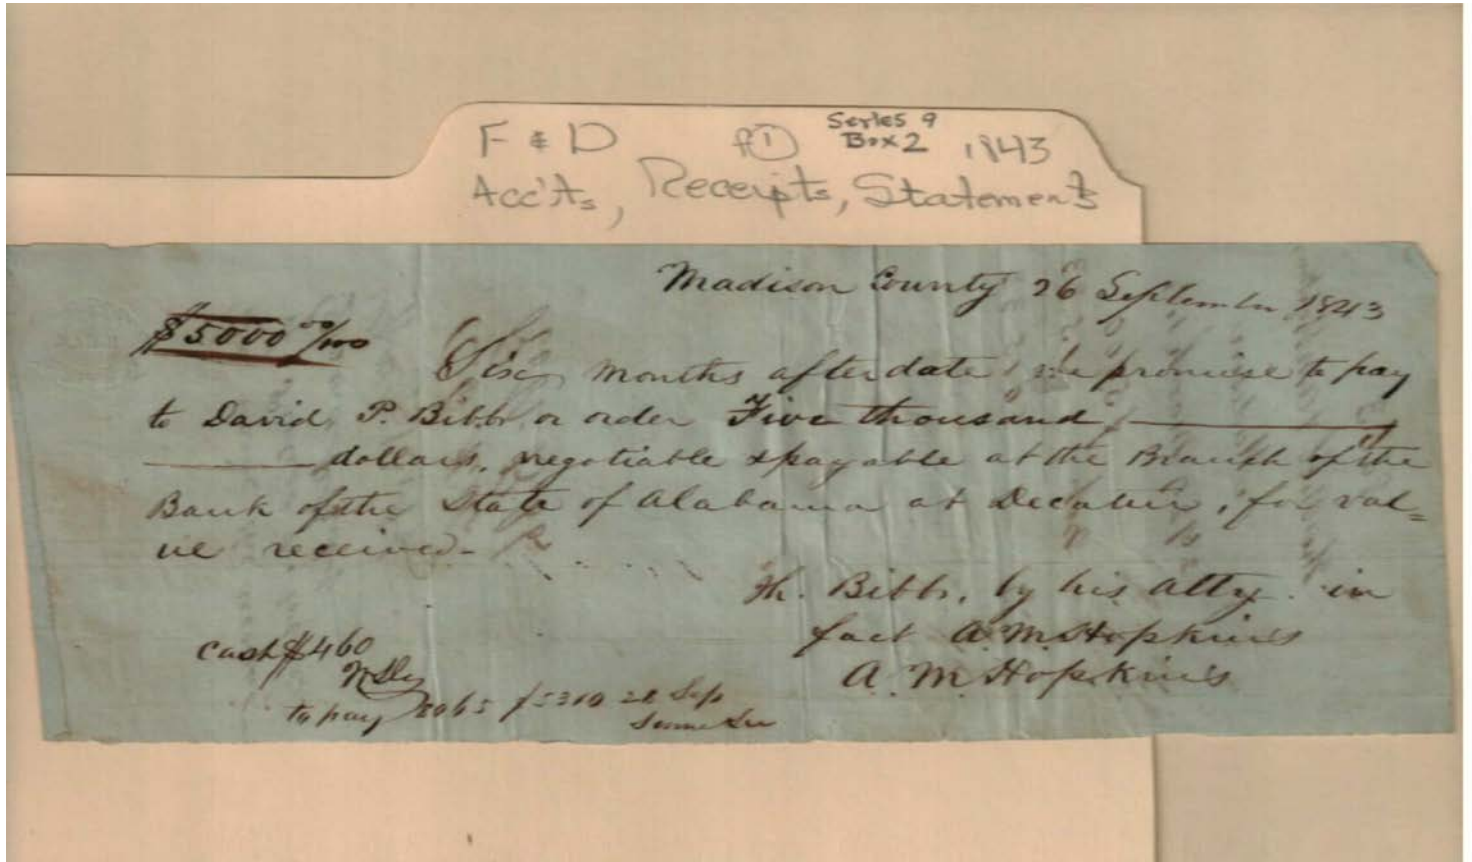 F & D
Series 9
Box 2
1843
Acc'ts, Receipts, Statements
Madison County 26 September 1843
$5000 00/100
Six months after date we promise to pay
to David P. Bibb, or order Five thousand
dollars, negotiable & payable at the Branch of the
Bank of the State of Alabama at Decatur, for val=
ue received-
Th. Bibb, by his atty. in
fact A. M. Hopkins
A. M. Hopkins
Cash $460
to pay